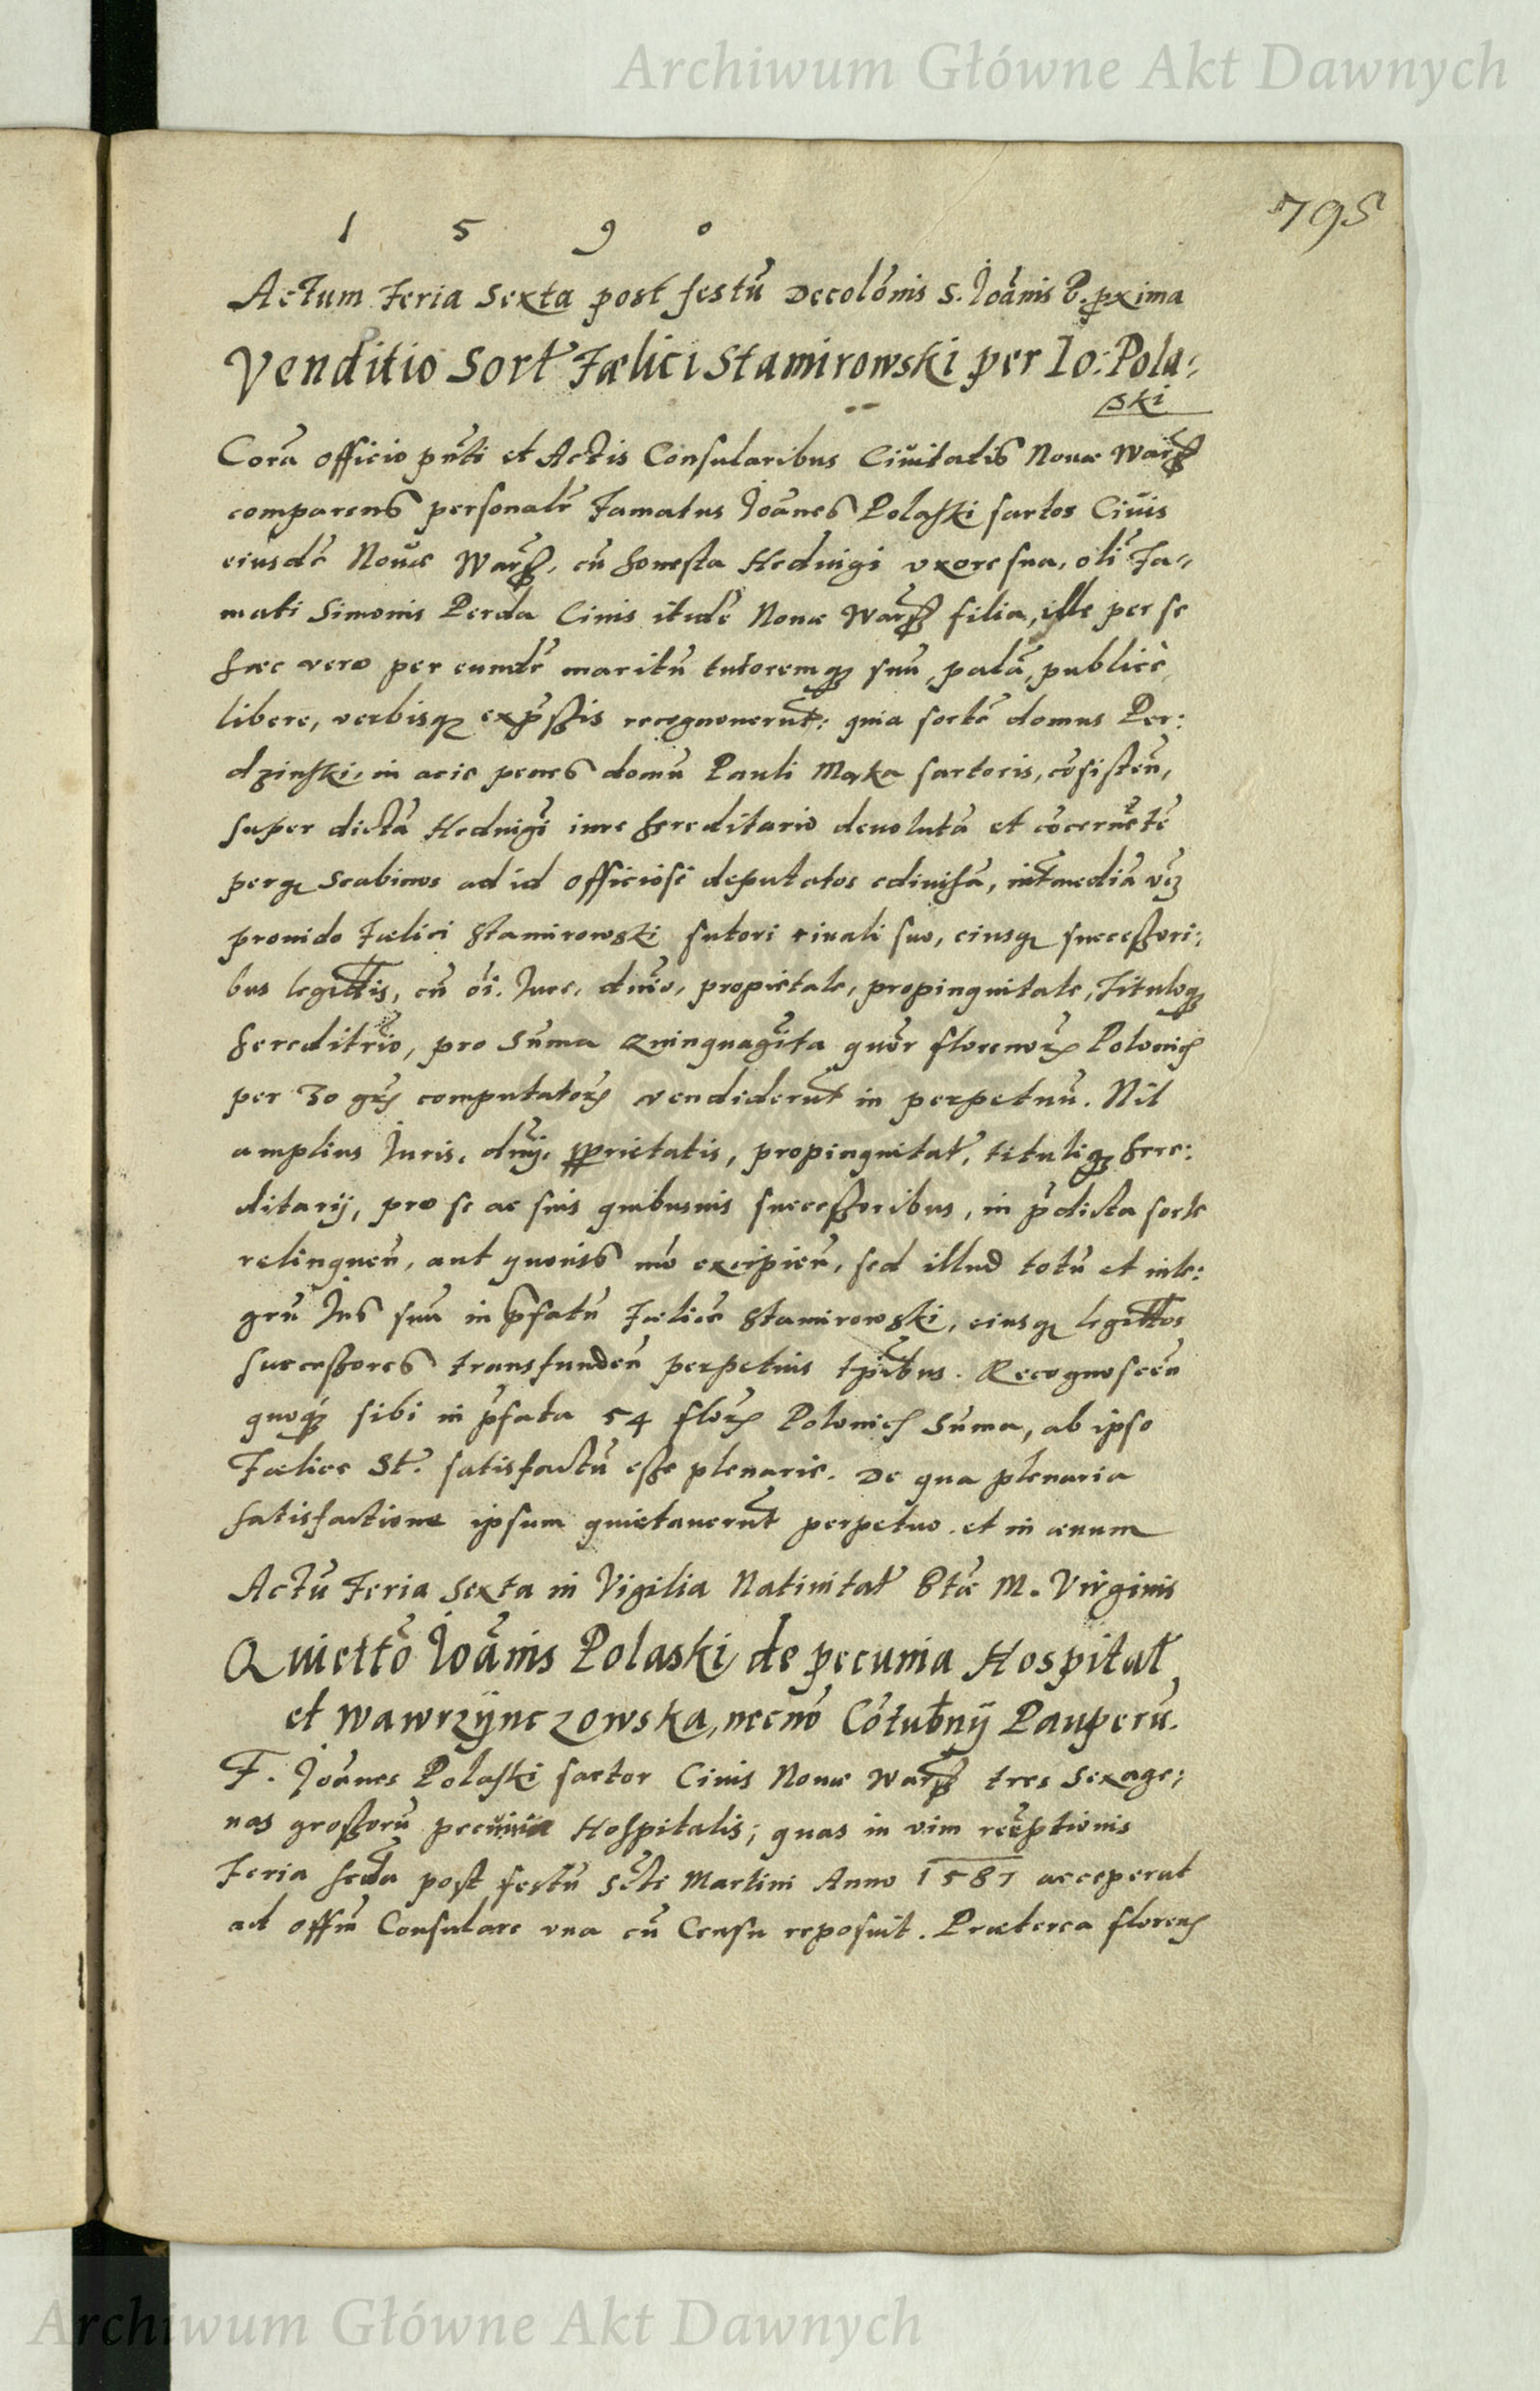 Archiwum Główne Akt Dawnych
795
1 5 9 0
Actum Feria Sexta post festū Decolōnis S. Ioānis B. pxima
Venditio Sort Fælici Stamirowski per Io: Pola-
ski
Corā officio pn̄ti et Actis Consularibus Ciuitatis Nouæ Warß
comparens personalr Famatus Ioānes Polaski sartor Ciuis
eiusdē Nouæ Warß, cū honesta Heduigi uxore sua, oli Fa-
mati Simonis Perda Ciuis itidē Nouæ Warß filia, ille per se
hæc vero per eundē maritū tutoremq suū, palā, publicè,
libere, verbisq expßis recognouerūt: quia sortē domus Per:
dzinski, in acie penes domū Pauli Mąka sartoris, cōsisten̄,
super dictā Heduigi iure hereditario deuolutā et cōcernētē
perq Scabinos ad id officiose deputatos ediuisā, intmediā vz
prouido Fælici Stamirowski sutori riuali suo, eiusq successori:
bus legittis, cū oi. Iure, dnio, proprietate, propinquitate, Tituloq
hereditrio, pro Sūma Quinquagīta quor florenor Polonic
per 30 grs computator vendiderūt in perpetuū. Nil
amplius Iuris, dnij, pprietatis, propinquitat, tituliq here:
ditarij, pro se ac suis quibusuis successoribus, in pdicta sorte
relinquen̄, aut quouis mō excipien̄, sed illud totū et inte:
grū Ius suū in pfatū Fælicē Stamirowski, eiusq legittos
successores transfunden̄ perpetuis tpibus. Recognoscen̄
quoq sibi in pfata 54 flor Polonic Sūma, ab ipso
Fælice St. satisfactū esse plenarie. De qua plenaria
satisfactione ipsum quietauerūt perpetuo et in æuum
Actū Feria Sexta in Vigilia Natiuitat Btæ M. Virginis
Quiettō Ioānis Polaski de pecunia Hospital
et Wawrzÿnczowska, necnō Cōtubnij Pauperū.
F. Ioānes Polaski sartor Ciuis Nouæ Warß tres Sexage:
nas grossorū pecunia Hospitalis; quas in vim reēptionis
Feria scda post festū Scti Martini Anno 1587 acceperat
ad offm Consulare una cū Censu reposuit. Præterea florens
Archiwum Główne Akt Dawnych